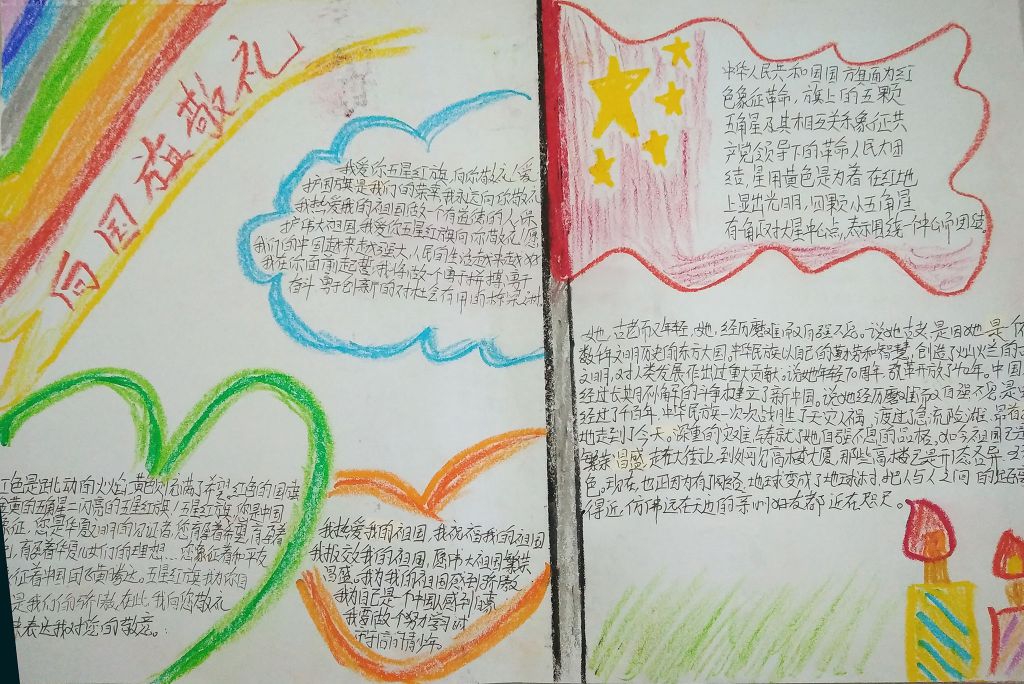 向国旗敬礼
我爱你五星红旗,向你敬礼!爱
护国旗是我们的荣幸,我永远向你敬礼
我热爱我的祖国做一个有道德的人,保
护伟大祖国,我爱你五星红旗向你敬礼!愿
我们的中国越来越强大,人民的生活越来越
我在你面前起誓,我将做一个勇于拼搏,勇于
奋斗,勇于创新的对社会有用的
红色是跳动的火焰,黄色充满了希望,红色的国旗
金黄的五角星二闪亮的五星红旗!五星红旗,你是中国
象征,您是华夏文明的见证者,您有着希望,有着
有着华夏儿女们的理想…您象征着和平友
征着中国向飞黄腾达。五星红旗,我为你自
是我们的骄傲,在此,我向您敬礼
来表达我对您的敬意。
我热爱我的祖国,我祝福我的祖国
我报效我的祖国,愿伟大祖国繁荣
昌盛。我为我的祖国感到骄傲
我为自己是一个中国人感到自豪
我要做个努力学习对
的青少年。
中华人民共和国国旗旗面为红
色象征革命,旗上的五颗
五角星及其相互关系象征共
产党领导下的革命人民大团
结,星用黄色是为着在红地
上显出光明,四颗小五角星
有一角正对大星中心点,表示围绕一个中心而团结
她,古老而又年轻,她,经历磨难而自强不息。说她古老,是因她是
数千年文明历史的东方大国,中华民族以自己的勤劳和智慧,创造了灿烂的
文明,对人类发展作出过重大贡献。说她年轻70周年,改革开放了40年。中国
经过长期有解的斗争,建立了新中国。说她经历磨难而自强不息是
经过了千百年,中华民族一次次战胜了天灾人祸,渡过急流险滩,昂首
地走到了今天。深重的灾难铸就了她自强不息的品格。如今祖国已
繁荣昌盛,走在大街上,到处可见高楼大厦,那些高楼已是形态各异,
色。现在,也正因为有了网络,地球变成了地球村,把人与人之间的距离
得近,仿佛远在天边的亲朋好友都近在咫尺。